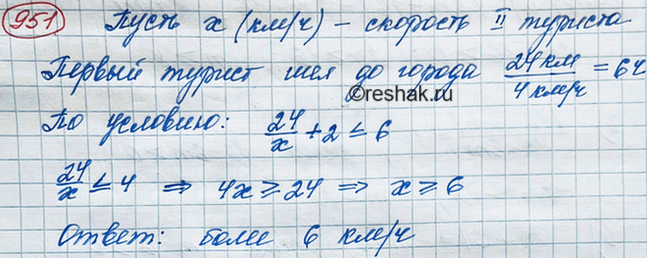 951 Пусть x (км/ч) – скорость II туриста
Первый турист шел до города 24 км / 4 км/ч = 6ч
©reshak.ru
По условию: 24/x + 2 ≤ 6
24/x ≤ 4 ⇒ 4x ≥ 24 ⇒ x ≥ 6
Ответ: более 6 км/ч